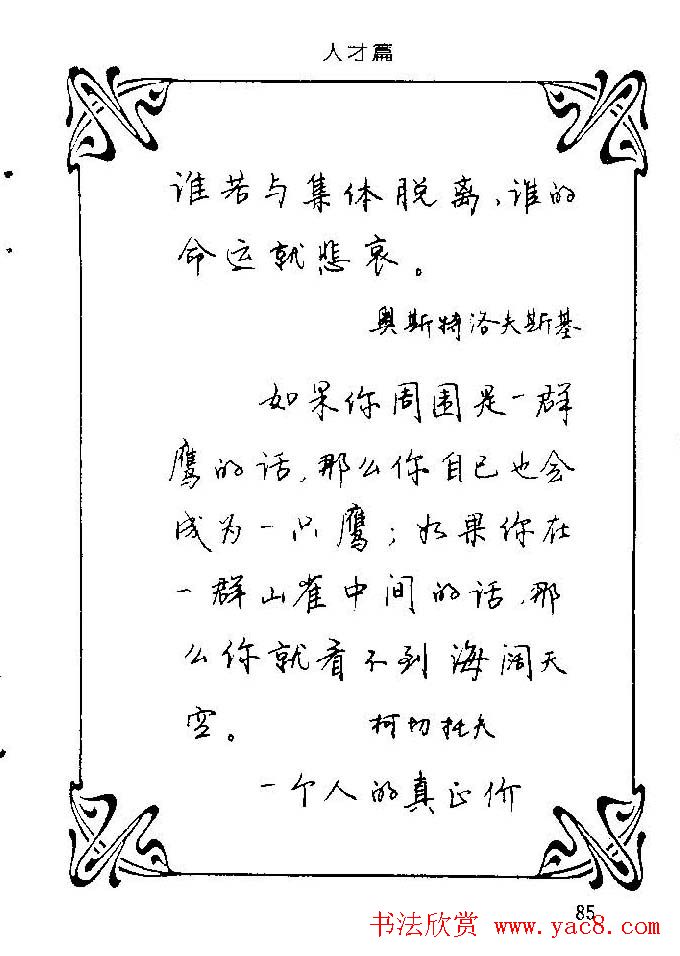 人才篇
谁若与集体脱离、谁的
命运就悲哀。
奥斯特洛夫斯基
如果你周围是一群
鹰的话、那么你自己也会
成为一只鹰；如果你在
一群山雀中间的话、那
么你就看不到海阔天
空。 柯切托夫
一个人的真正价
85
书法欣赏 www.yac8.com